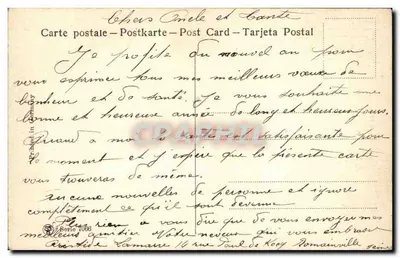 Chers Oncle et Tante
Carte postale — Postkarte — Post Card — Tarjeta Postal
Je profite du nouvel an pour
vous exprimer tous mes meilleurs vœux de
bonheur et de santé. Je vous souhaite une
bonne et heureuse année de long et heureux jours.
Quand a moi la santé est satisfaisante pour
le moment et j'espère que la présente carte
vous trouveras de même.
Aucune nouvelles de personne et ignore
complètement ce qu'il sont devenus
Plus rien a vous dire que de vous envoyer mes
meilleurs Votre neveu qui vous embrasse
Lamarre 14 rue Paul de Kock Romainville Seine
Serie 7066